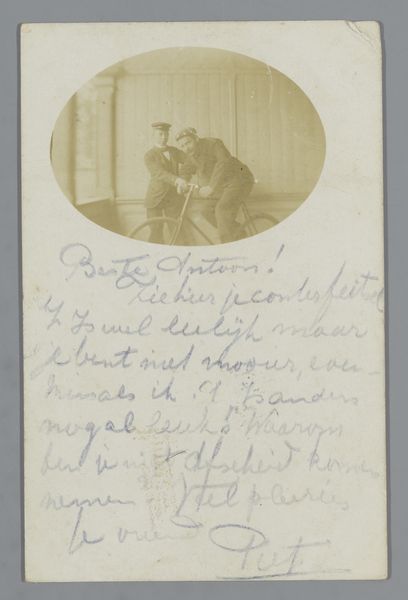 Beste Antoon!
Ziehier je conterfeitsel
't Is wel leelijk maar
je bent niet mooier, even-
min als ik. 't Is anders
nogal leuk! Waarom
ben je niet Afscheid komen
nemen? Veel plezier
Je vriend Piet